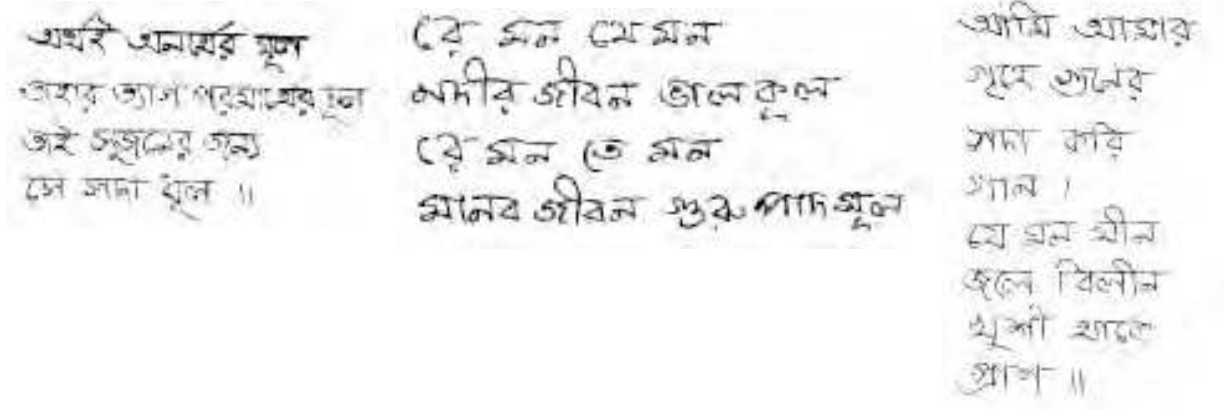 অর্থই অনর্থের মূল
তাহার ত্যাগ পরমার্থের মূল
তাই সুজনের জন্য
সে সদা ধূল ॥
রে মন যেমন
নদীর জীবন ভাল কূল
রে মন তে মন
মানব জীবন গুরু পাদমূল
আমি আমার
গৃহে গুনের
সদা করি
গান ।
যে মন মীন
জলে বিলীন
খুশী থাকে
প্রাণ ॥